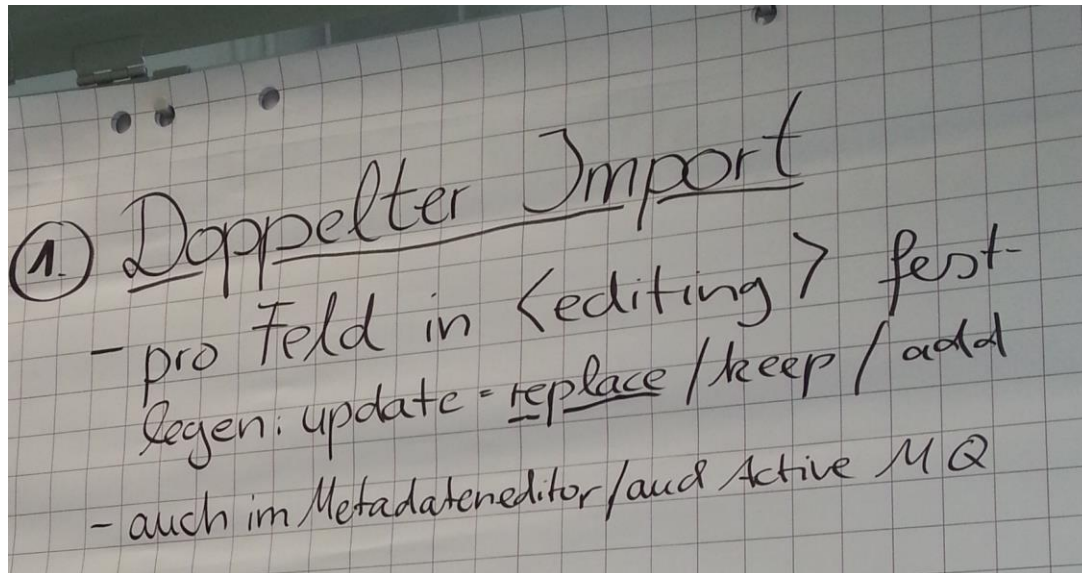 1. Doppelter Import
- pro Feld in <editing> fest-
legen: update = replace / keep / add
- auch im Metadateneditor / aud Active MQ